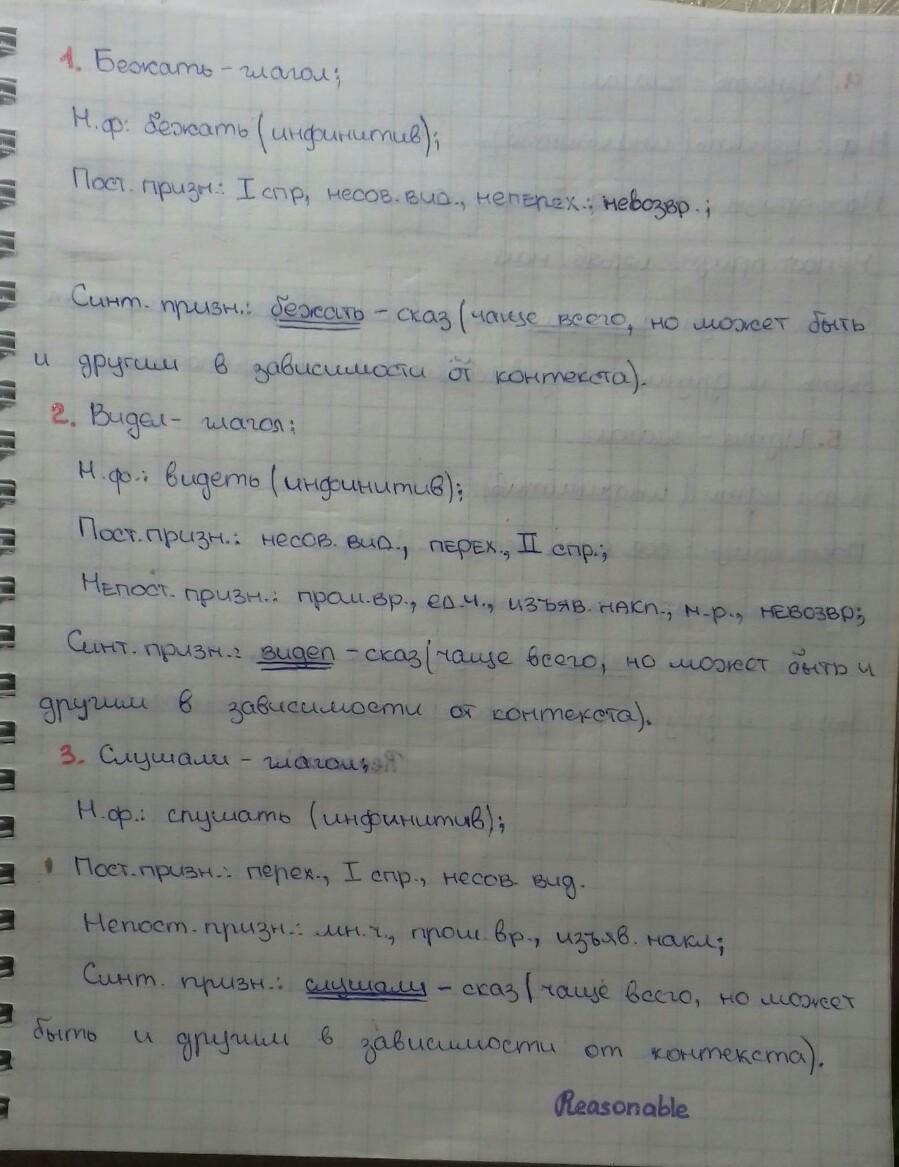 1. Бежать – глагол;
Н.ф: бежать (инфинитив);
Пост. призн.: I спр, несов. вид., неперех.; невозвр.;
Синт. призн.: бежать – сказ (чаще всего, но может быть
и другим в зависимости от контекста).
2. Видел – глагол;
Н.ф.: видеть (инфинитив);
Пост. призн.: несов. вид., перех., II спр.;
Непост. призн.: прош. вр., ед.ч., изъяв. накл., м.р., невозвр;
Синт. призн.: видел – сказ (чаще всего, но может быть и
другим в зависимости от контекста).
3. Слушали – глагол;
Н.ф.: слушать (инфинитив);
Пост. призн.: перех., I спр., несов. вид.
Непост. призн.: мн.ч., прош. вр., изъяв. накл;
Синт. призн.: слушали – сказ (чаще всего, но может
быть и другим в зависимости от контекста).
Reasonable